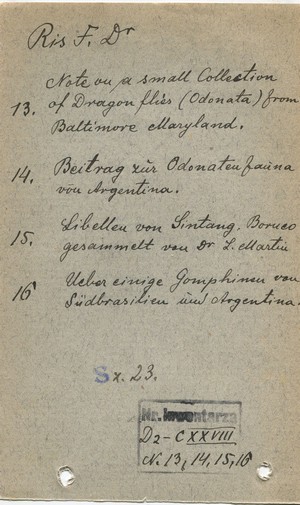 Ris F. Dr
Note on a small Collection
13. of Dragon flies (Odonata) from
Baltimore Maryland.
14. Beitrag zur Odonatenfauna
von Argentina.
15. Libellen von Sintang, Borneo
gesammelt von Dr L. Martin
16 Ueber einige Gomphinen von
Südbrasilien und Argentina.
Sz. 23.
Nr. inwentarza
D2 - CXXVIII
N. 13, 14, 15, 16